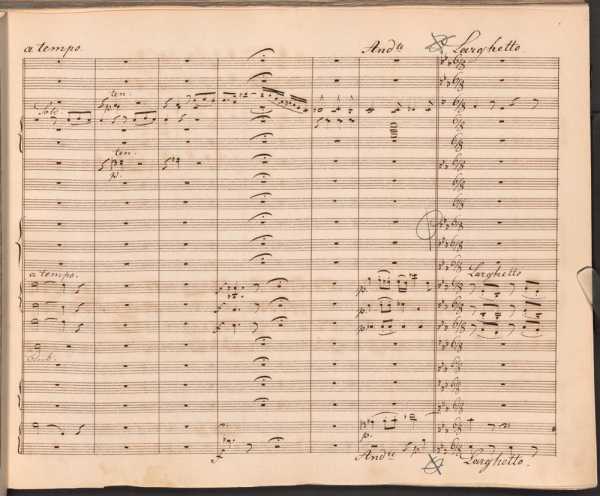 a tempo. Andte Larghetto
ten.
Solo
ten.
p.
a tempo. Larghetto
p.
p.
p.
p.
Andte Larghetto.